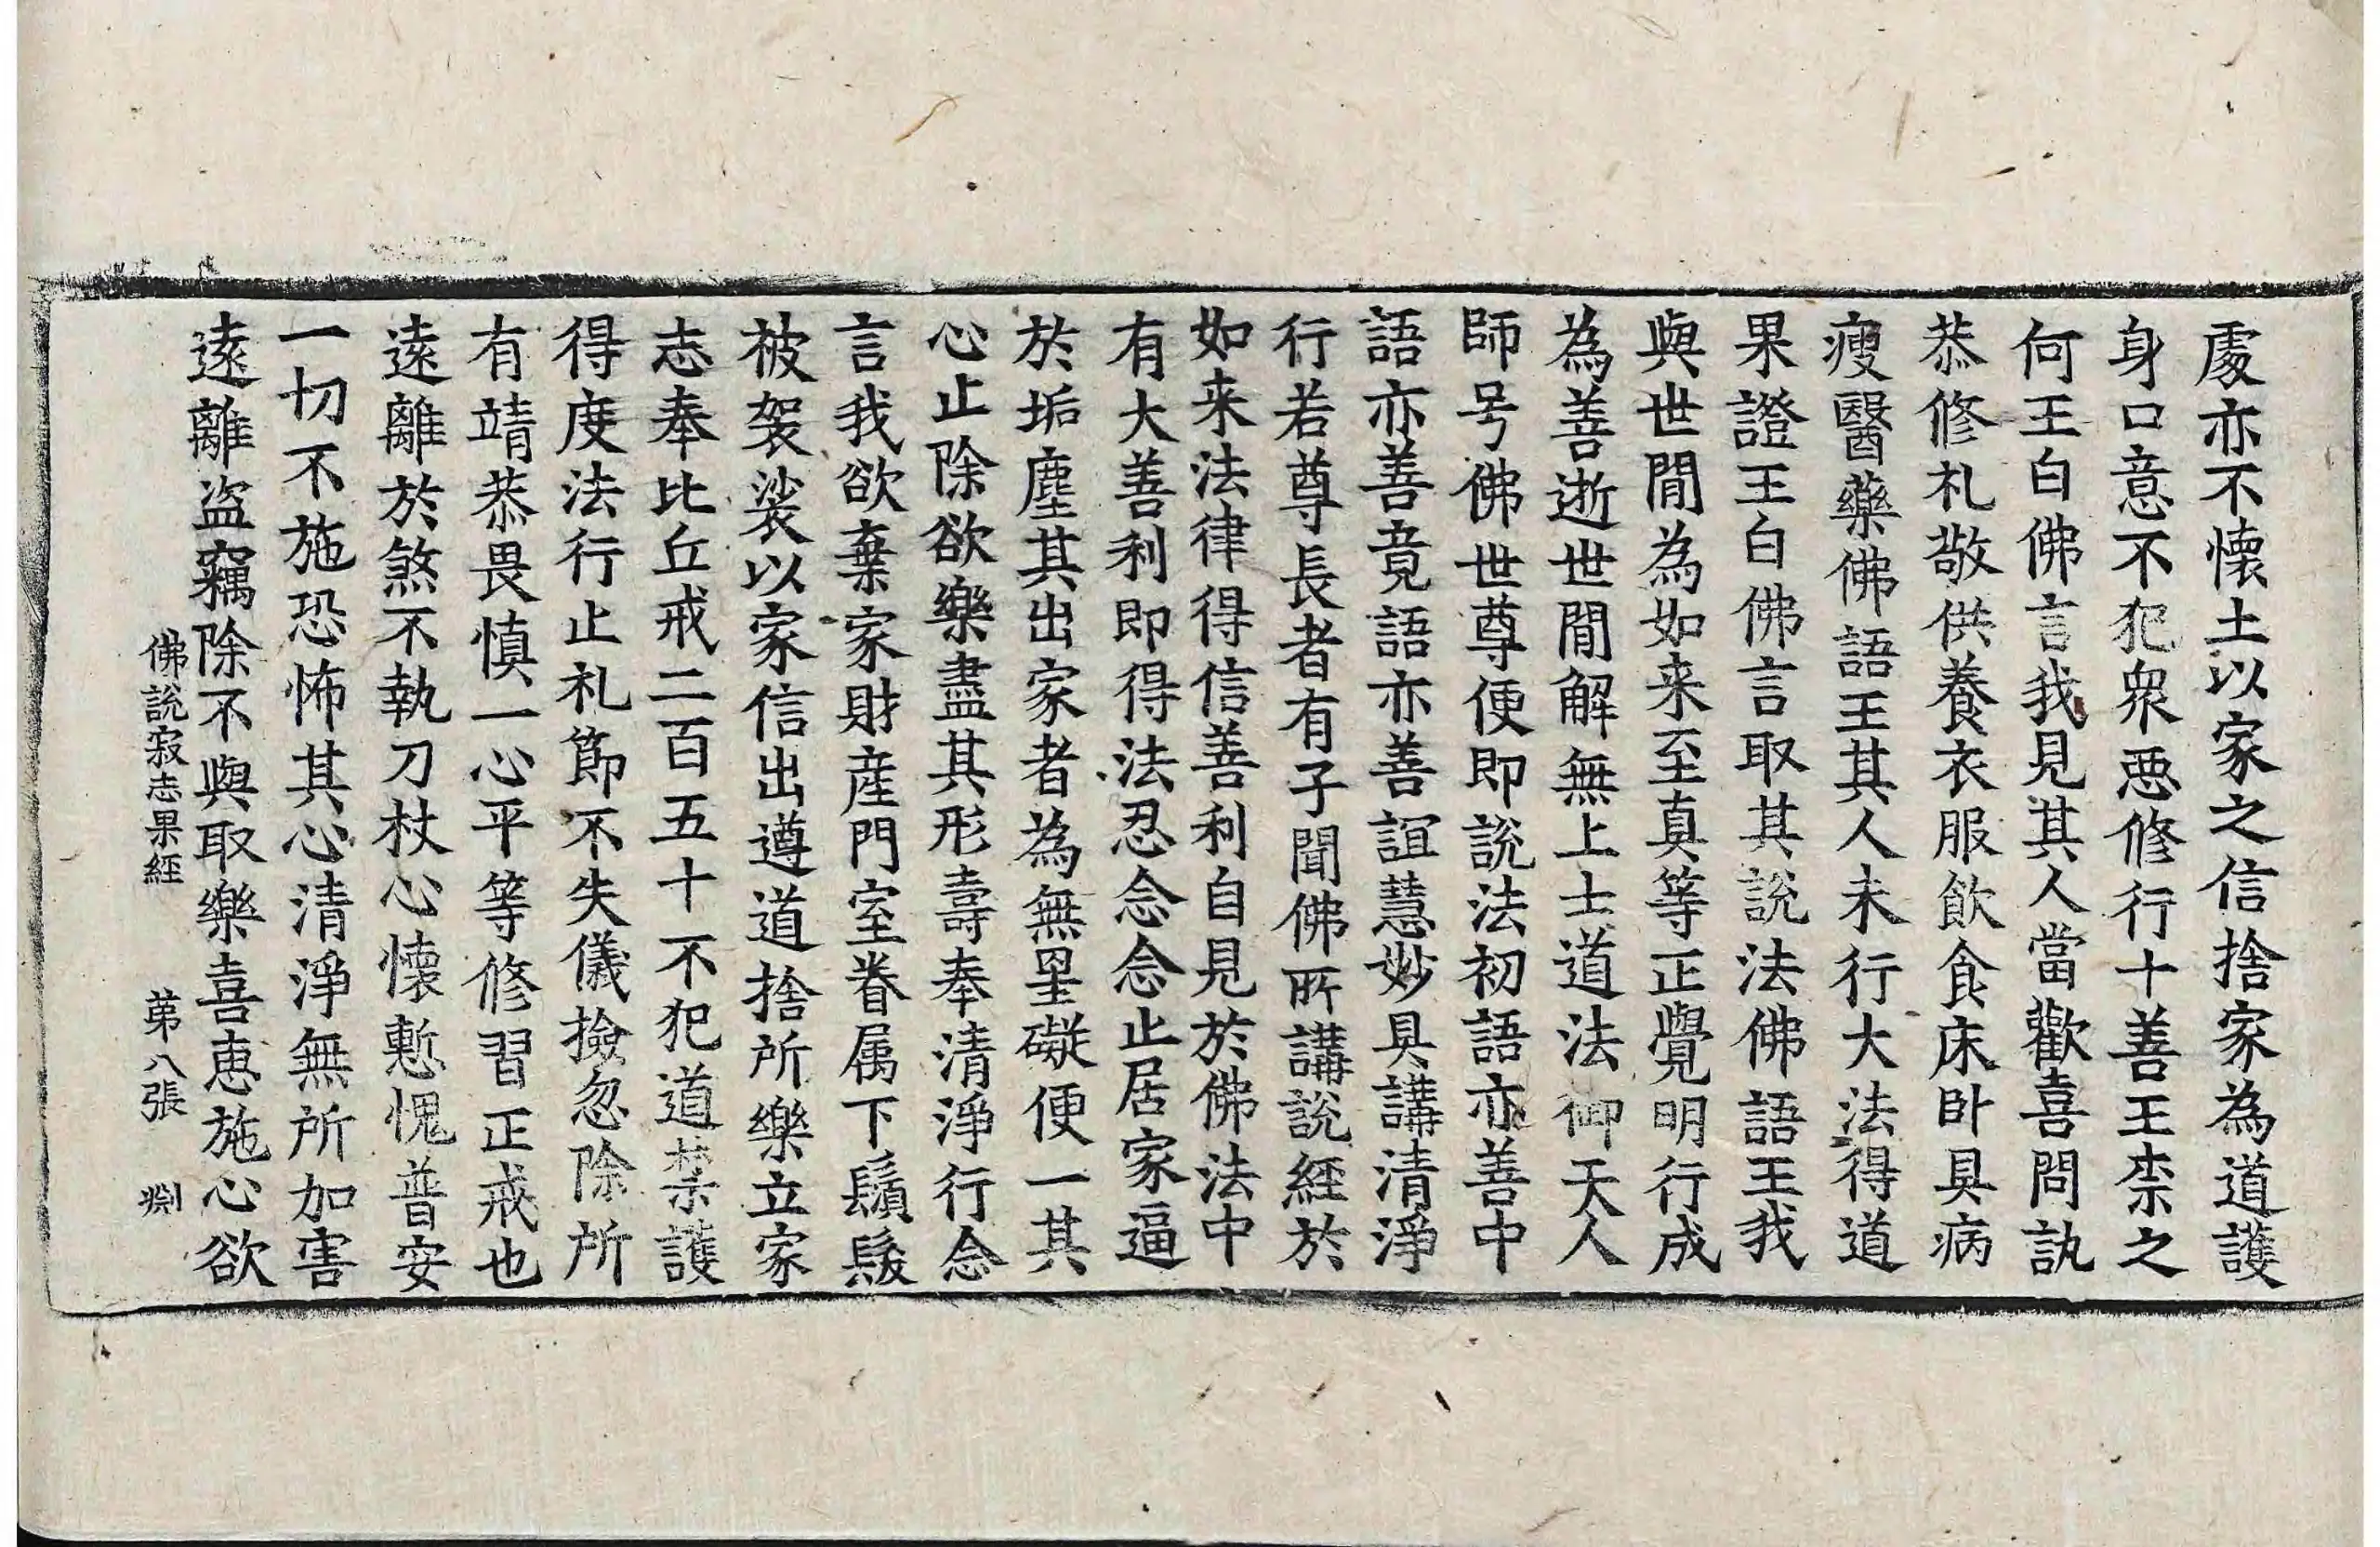 處亦不懷土以家之信捨家為道護
身口意不犯衆惡修行十善王柰之
何王白佛言我見其人當歡喜問訊
恭修札敬供養衣服飲食床卧具病
瘦醫藥佛語王其人未行大法得道
果證王白佛言取其說法佛語王我
與世閒為如来至真等正覺明行成
為善逝世閒解無上士道法御天人
師号佛世尊便即說法初語亦善中
語亦善竟語亦善誼慧妙具講清淨
行若尊長者有子聞佛所講說經於
如来法律得信善利自見於佛法中
有大善利即得法忍念念止居家逼
於垢塵其出家者為無罣礙便一其
心止除欲樂盡其形壽奉清淨行念
言我欲棄家財産門室眷属下鬚髮
被袈裟以家信出遵道捨所樂立家
志奉比丘戒二百五十不犯道禁護
得度法行止札節不失儀撿忽除所
有靖恭畏慎一心平等修習正戒也
遠離於煞不執刀杖心懷慙愧普安
一切不施恐怖其心清淨無所加害
遠離盜竊除不與取樂喜恵施心欲
佛說寂志果經 苐八張 渕